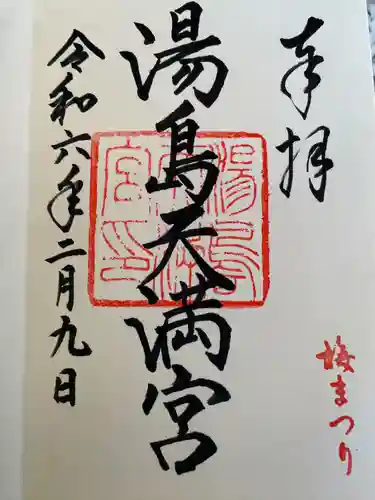 奉拝
梅まつり
湯島天満宮
湯島天満宮印
令和六年二月九日